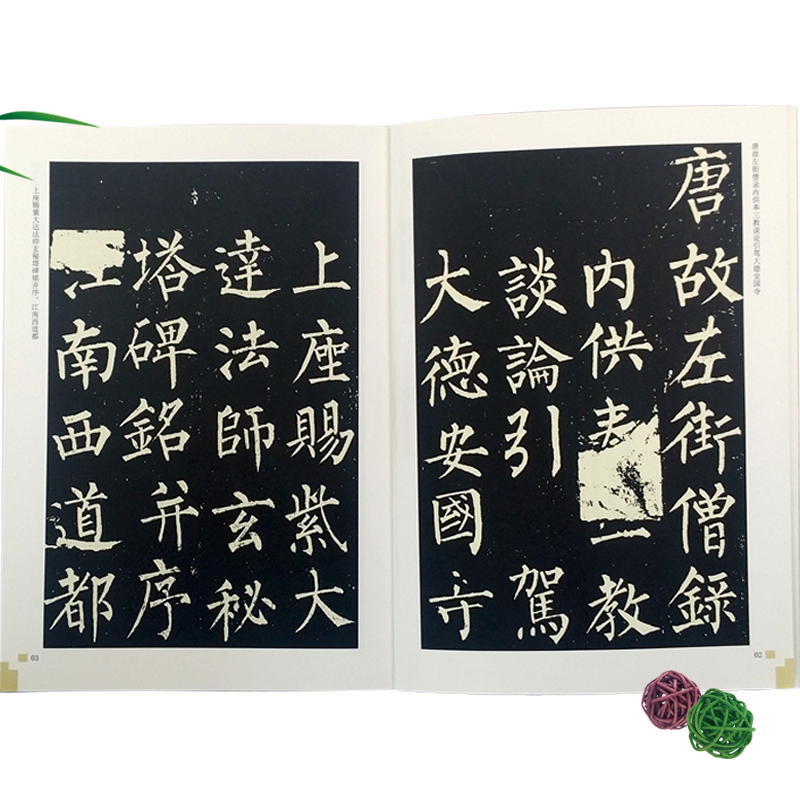 唐故左街僧录内供奉三教谈论引驾大德安国寺
唐故左街僧錄
内供奉三教
談論引駕
大德安國寺
02
上座賜紫大
達法師玄秘
塔碑銘并序
江南西道都
上座赐紫大达法师玄秘塔碑铭并序。江南西道都
03